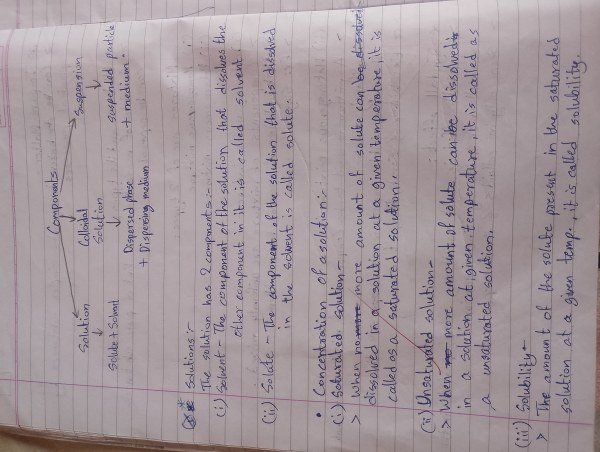 Components
Solution Colloidal Suspension
Solution
Solute + Solvent Dispersed phase suspended particle
+ Dispersing medium + medium.
Solutions:-
The solution has 2 compments:-
(i) Solvent - The component of the solution that dissolves the
other component in it is called solvent.
(ii) Solute - The component of the solution that is dissolved
in the solvent is called solute.
• Concentration of a solution:-
(i) Saturated solution -
> When no more more amount of solute can be dissolved
dissolved in a solution at a given temperature, it is
called as a saturated solution.
(ii) Unsaturated solution -
> When no more amount of solute can be dissolved
in a solution at given temperature, it is called as
a unsaturated solution.
(iii) Solubility -
> The amount of the solute present in the saturated
solution at a given temp., it is called solubility.